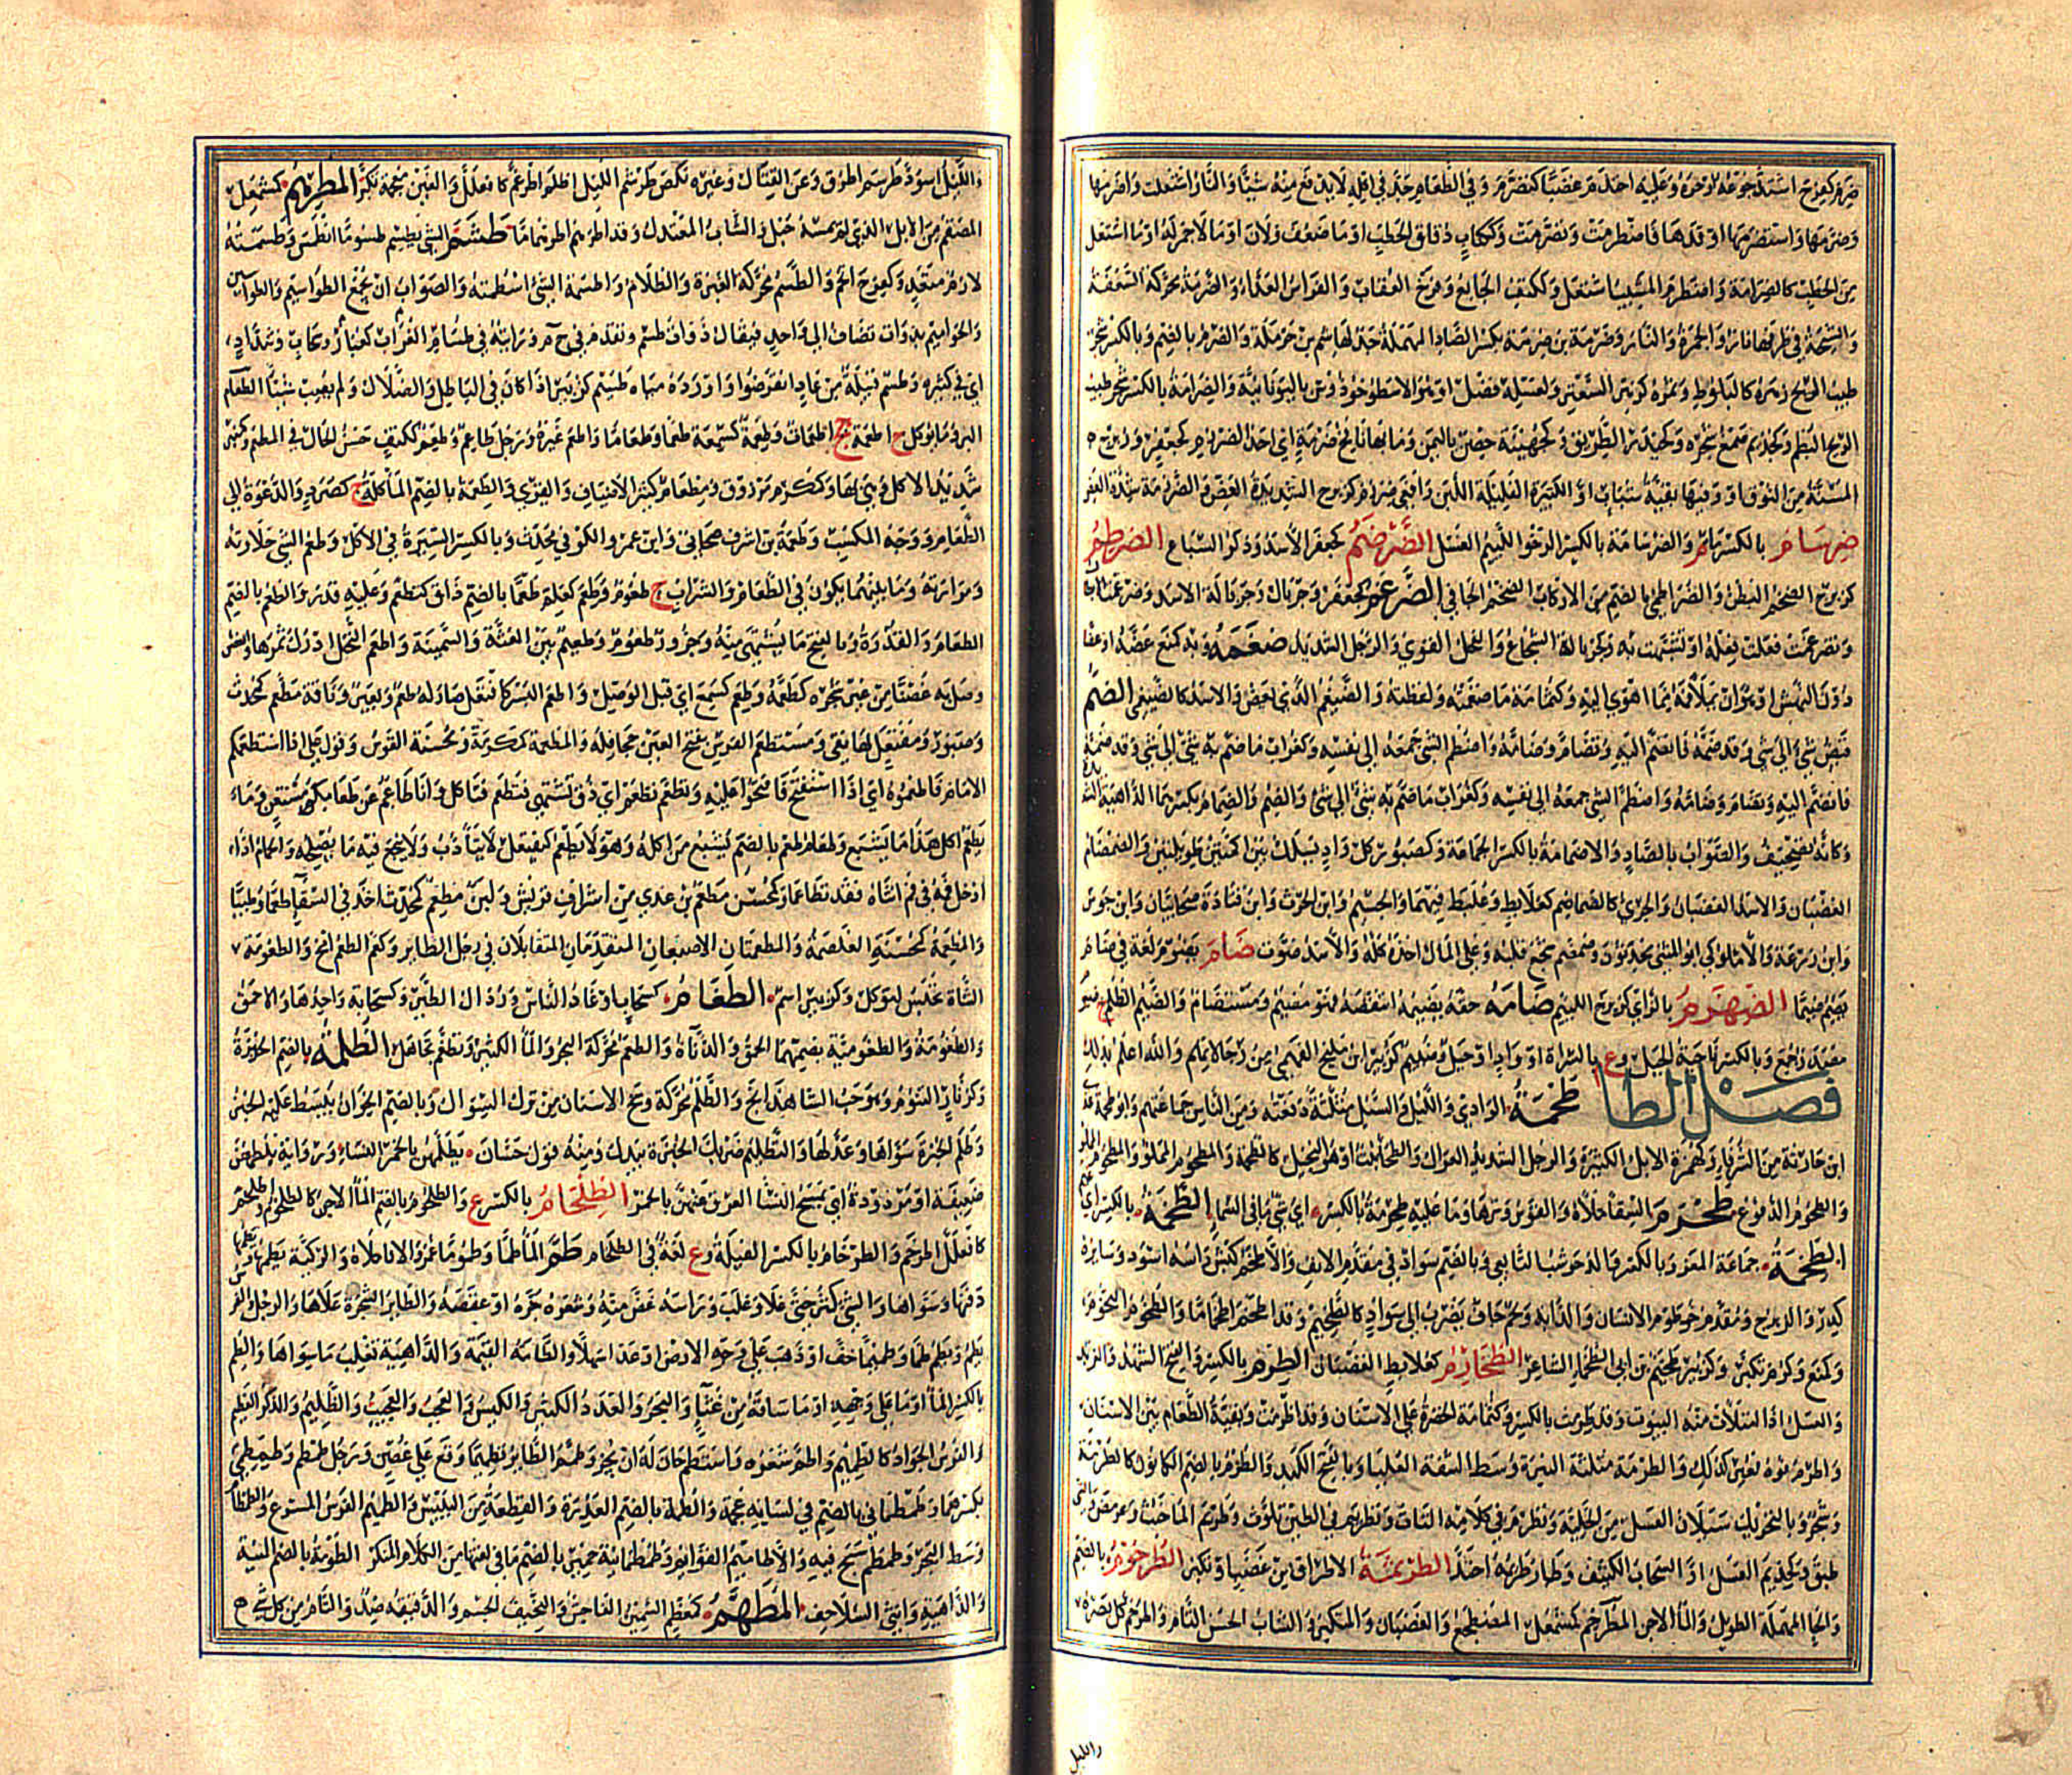 ضرم كفرح اشتد جوعه او حره وعليه احتد غضبا كتضرم وفي الطعام جد في اكله لا يدفع منه شيئا والنار اشتعلت واضرمها
وضرمها واستضرمها اوقدها فاضطرمت وتضرمت وككتاب دقاق الحطب او ما ضعف ولان او ما لا جمر له او ما اشتعل
من الحطب كالضرامة واضطرم المشيب اشتعل وككتف الجايع وفرخ العقاب والفرس العداء والضرمة محركة السعفة
والشيحة في طرفها نار والجمرة والنار وضرمة بن ضرمة بكسر الصاد المهملة جد لهاشم بن حرملة والضرم بالضم وبالكسر شجر
طيب الريح ثمره كالبلوط وزهره كزهر السعتر ولعسله فضل او هو الاسطوخوذوس باليونانية والضرامة بالكسر شجر طيب
المسنة من النوق او وفيها بقية شباب او الكبيرة القليلة اللبن وافعى ضرزم كزبرج الشديدة العض والضرزمة شدة العض
ضرسام بالكسر والضرسامة بالكسر الرخو اللئيم الفسل الضرضم كجعفر الاسد وذكر السباع الضرطم
كزبرج الضخم البطن والضراطمي بالضم من الاركاب الضخم الجافي الضرغم كجعفر وجريال وجريالة الاسد وضرغمت الابطال
وتضرغمت فعلت فعله او تشبهت به وكجريالة الشجاع والفحل القوي والرجل الشديد ضغمه وبه كمنع عضه او عضا
دون النهش او هو ان يملأ فمه مما اهوى اليه وكثمامة ما ضغمته ولفظته والضيغم الذي يعض والاسد كالضيغمي الضم
قبض شئ الى شئ وقد ضمه فانضم اليه وتضام وضامه واضطم الشئ جمعه الى نفسه وكغراب ما ضم به شئ الى شئ
فانضم اليه وتضام وضامه واضطم الشئ جمعه الى نفسه وكغراب ما ضم به شئ الى شئ والضم والضمام بكسرهما الداهية
وكأنه تصحيف والصواب بالصاد والاضمامة بالكسر الجماعة وكصبور كل واد يسلك بين اكمتين طويلتين والضمضام
الغضبان والاسد الغضبان والجرئ كالضماضم كعلابط وعلبط فيهما والجسيم وابن الحرث وابن قتادة صحابيان وابن جوس
وابن زرعة والاملوكي ابو المثنى محدثون وضمضم شجع قلبه وعلى المال اخذه كله والاسد صوت ضام يضوم لغة في ضام
يضيم ضيما الضهزم بالزاي كزبرج اللئيم ضامه حقه يضيمه انتقصه فهو مضيم ومستضام والضيم الظلم ج ضيوم
مصدر جمع وبالكسر ناحية الجبل وع بالسراة او واد او جبل وضيم كزبير ابن مليح الفهمي من رجالاتهم والله اعلم بذلك
فصل الطا طحمة الوادي والليل والسيل مثلثة دفعته ومن الناس جماعتهم وابو طحمة عدي
ابن حارثة من الشرفاء وكهمزة الابل الكثيرة والرجل الشديد العراك والطحماء نبت او هو النجيل كالطحمة والمطحوم المملو
والطحوم الدفوع طحرم السقا ملاه والقوس وترها وما عليه طحرمة بالكسر اي شئ وما في السماء الطحمة بالكسر اي غيم
الطخمة جماعة المعز وبالكسر والد حوشب التابعي وبالضم سواد في مقدم الانف والاطخم كبش راسه اسود وسايره
كدر والديزج ومقدم خرطوم الانسان والدابة ولحم جاف يضرب الى سواد كالطخيم وقد اطخم اطخماما والطخوم التخوم
وكمنع وكرم تكبر وكزبير طخيم بن ابي الطخماء الشاعر الطخارم كعلابط الغضبان الطرم بالكسر والفتح الشهد والزبد
والعسل اذا امتلات منه البيوت وقد طرمت بالكسر وكثمامة الخضرة على الاسنان وقد اطرمت وبقية الطعام بين الاسنان
واطرم فوه تغير كذلك والطرمة مثلثة النبرة وسط الشفة العليا وبالفتح الكبد والطرم بالضم الكانون كالطرمة
وشجر وبالتحريك سيلان العسل من الخلية وتطرم في كلامه التاث وتطريم في الطين تلوث وطريم الماء خبث وعرمض
طبق وكحذيم العسل او السحاب الكثيف وطار طريمه احتد الطرثمة الاطراق من غضب او تكبر الطرحوم بالضم
والحا المهملة الطويل والما الاجن المطرخم كمشمعل المضطجع والغضبان والمتكبر والشاب الحسن التام
والليل
والليل اسود طرسم اطرق وعن القتال وغيره نكص طرشم الليل اظلم اطرغم كافعلل والغين معجمة تكبر المطرهم كمشمعل
المصعب من الابل الذي لم يمسه حبل والشاب المعتدل وقد اطرهم اطرهماما طسم الشئ يطسم طسوما انطمس وطسمته
لازم متعد وكفرح اتخم والطسم محركة الغبرة والظلام واطسمة الشئ اسطمته والصواب ان تجمع الطواسيم والطواسين
والحواميم بذوات تضاف الى واحد فيقال ذوات طسم وتقدم في حم ورايته في طسام الغبار كغراب وسحاب وشداد
اي في كثيره وطسم قبيلة من عاد انقرضوا واوردة مياه طسيم كزبير اذا كان في الباطل والضلال ولم يصب شيئا الطعام
البر وما يؤكل ج اطعمة جج اطعمات وطعمه كسمعه طعما وطعاما واطعم غيره ورجل طاعم وطعم ككتف حسن الحال في المطعم
شديد الاكل وهي بهاء وكمكرم مرزوق ومطعام كثير الاضياف والقرى والطعمة بالضم الماكلة ج كصرد والدعوة الى
الطعام ووجه المكسب وطعمة بن اشرف صحابي وابن عمرو الكوفي محدث وبالكسر السيرة في الاكل وطعم الشئ حلاوته
ومرارته وما بينهما يكون في الطعام والشراب ج طعوم وطعم كعلم طعما بالضم ذاق كتطعم وعليه قدر والطعم بالضم
الطعام والقدرة وبالفتح ما يشتهى منه وجزور طعوم وطعيم بين الغثة والسمينة واطعم النخل ادرك ثمرها والغصن
وصل به غصنا من غير شجره كطعمه وطعم كسمع اي قبل الوصل واطعم البسر كافتعل صار له طعم وبعير وناقة مطعم كمحدث
وصبور ومفتعل لها نقي ومستطعم الفرس بفتح العين جحافله والمطعمة كمكرمة ومحسنة القوس وقول علي اذا استطعمكم
الامام فاطعموه اي اذا استفتح فافتحوا عليه وتطعم تطعم اي ذق تشتهي فتطعم فتاكل وانا طاعم عن طعامكم مستغن وماء
يطعم اكل هذا ما يشبع وطعام طعم بالضم يشبع من اكله وهو لا يطعم كيفتعل لا يتادب ولا ينجع فيه ما يصلحه والحمام اذا
ادخل فمه في فم انثاه فقد تطاعما وكمحسن مطعم بن عدي من اشراف قريش ولبن مطعم كمحدث اخذ في السقاء طعما وطيبا
والمطعمة كمحسنة الغلصمة والمطعمتان الاصبعان المتقدمتان المتقابلتان في رجل الطاير والطعومة
الشاة تحبس لتؤكل وكزبير اسم الطغام كسحاب اوغاد الناس ورذال الطير وكسحابة واحدها والاحمق
والطغومة والطغومية بضمهما الحمق والدناءة والطغم محركة البحر والما الكثير وتطغم تجاهل الطلمة بالضم الخبزة
وكزنار التنوم وهو حب الشاهدانج والطلم محركة وسخ الاسنان من ترك السواك وبالضم الخوان يبسط عليه الخبز
وطلم الخبزة سواها وعدلها والتطليم ضربك الخبزة بيدك ومنه قول حسان يطلمهن بالخمر النساء ورواية يلطمهن
ضعيفة او مردودة اي تمسح النسا العرق عنهن بالخمر الطلحام بالكسر ع والطلخوم بالضم الماء الاجن كالطلخوم واطلخم
كافعلل اطرخم والطلخام بالكسر الفيلة وع لغة في الطلحام طم الماء طما وطموما غمر والاناء ملاه والركية يطمها
دفنها وسواها والشئ كثر حتى علا وغلب وراسه غض منه وشعره جزه او عقصه والطاير الشجرة علاها والرجل والفرس
يطم ويطم طما وطميما خف او ذهب على وجه الارض او عدا سهلا والطامة القيمة والداهية تغلب ما سواها والطم
بالكسر الماء او ما على وجهه او ما ساقه من غثاء والبحر والعدد الكثير والكبس والعجب والعجيب والظليم والذكر العظيم
والفرس الجواد كالطميم واطم شعره واستطم حان له ان يجز وطمم الطاير تطميما وقع على غصن ورجل طمطم وطمطمي
بكسرهما وطمطماني بالضم في لسانه عجمة والطمة بالضم العذرة والقطعة من اليبيس والطميم الفرس المسرع والطمطام
وسط البحر وطمطم سبح فيه والاطاميم القوايم وطمطمانية حمير بالضم ما في لغتها من الكلام المنكر الطومة بالضم المنية
والداهية وانثى السلاحف المطهم كمعظم السمين الفاحش والنحيف الجسم والدقيقه ضد والتام من كل شئ